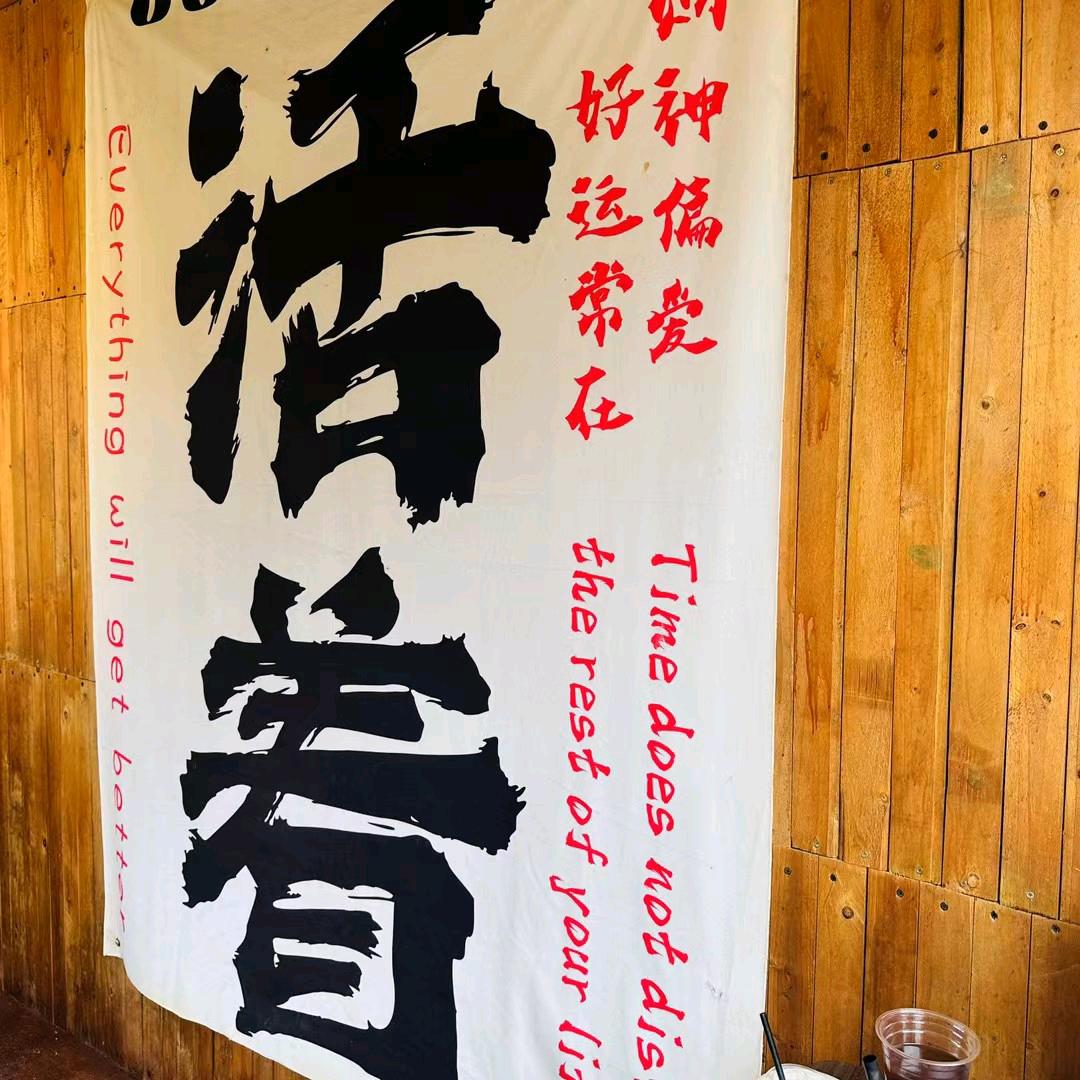 神偏爱
好运常在
活着
Everything will get better
Time does not
the rest of your